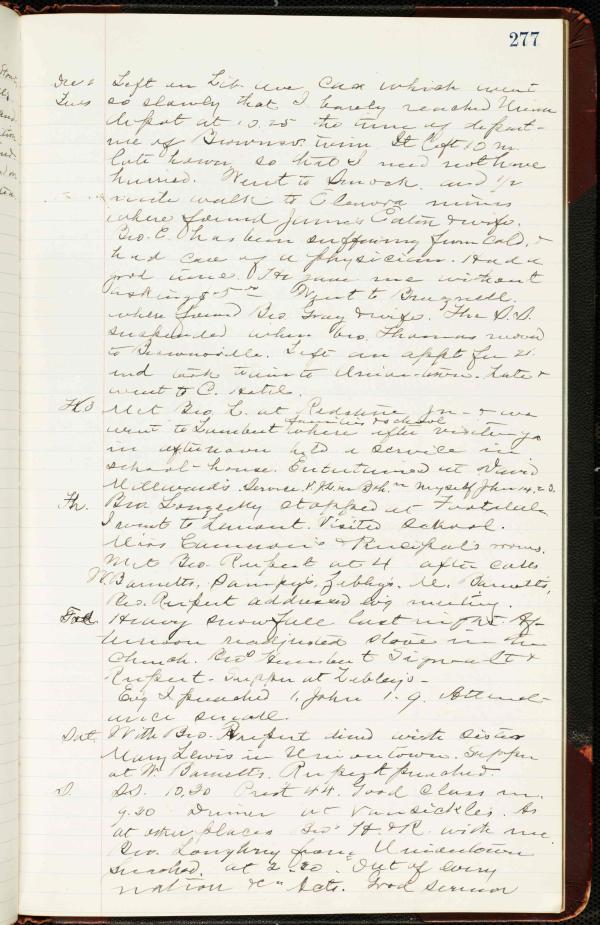 277
Left on Lib. ave Car which went
Tues so slowly that I barely reached Union
depot at 10.25 the time of depart-
ure of Brownsv. train. It left 10 m.
late however, so that I need not have
hurried. Went to Smock and 1/2
mile walk to Elenora mines
where found James Eaton & wife.
Bro. E. has been suffering from cold, &
had care of a physician. Had a
good time. He gave me without
asking Went to Brugnell.
where found Bro. Gray & wife. The S.S.
suspended when bro. Thomas moved
to Brownsville. Left an appt for 21.
and took train to Union-town. Late &
went to C. Hotel.
Met Bro. L. at Redstone Jn- & we
families & school
went to Lambert where after visiting
in afternoon held a service in
school-house. Entertained at David
Millward's. Service. myself John 14,23.
Th. Bro. Longley stopped at Footedale
I went to Lemont. Visited School.
Miss Cameron's & Principal's rooms.
Met Bro. Rupert at 4 after calls
W. Barnetts, Dampey's, Zebley's, Barnetts,
Bro. Rupert addressed evg meeting.
Heavy snow fall last night. Af-
ternoon readjusted stove in the
Church. Bros Humbert Sigwalt &
Rupert. Supper at Zebley's-
Evg I preached 1. John 1.9. Attend-
ance small.
Sat. With Bro. Rupert dined with Sister
Mary Lewis in Uniontown. Supper
at W. Barnetts. Rupert preached.
S. S.S. 10,30 Prest 44. Good Class m.
9.30 Dinner at Vansickles. As
at other places Bros H & R. with me
Bro. Loughrey from Uniontown
preached at 2.30. "Out of every
nation &c" Acts. Good sermon